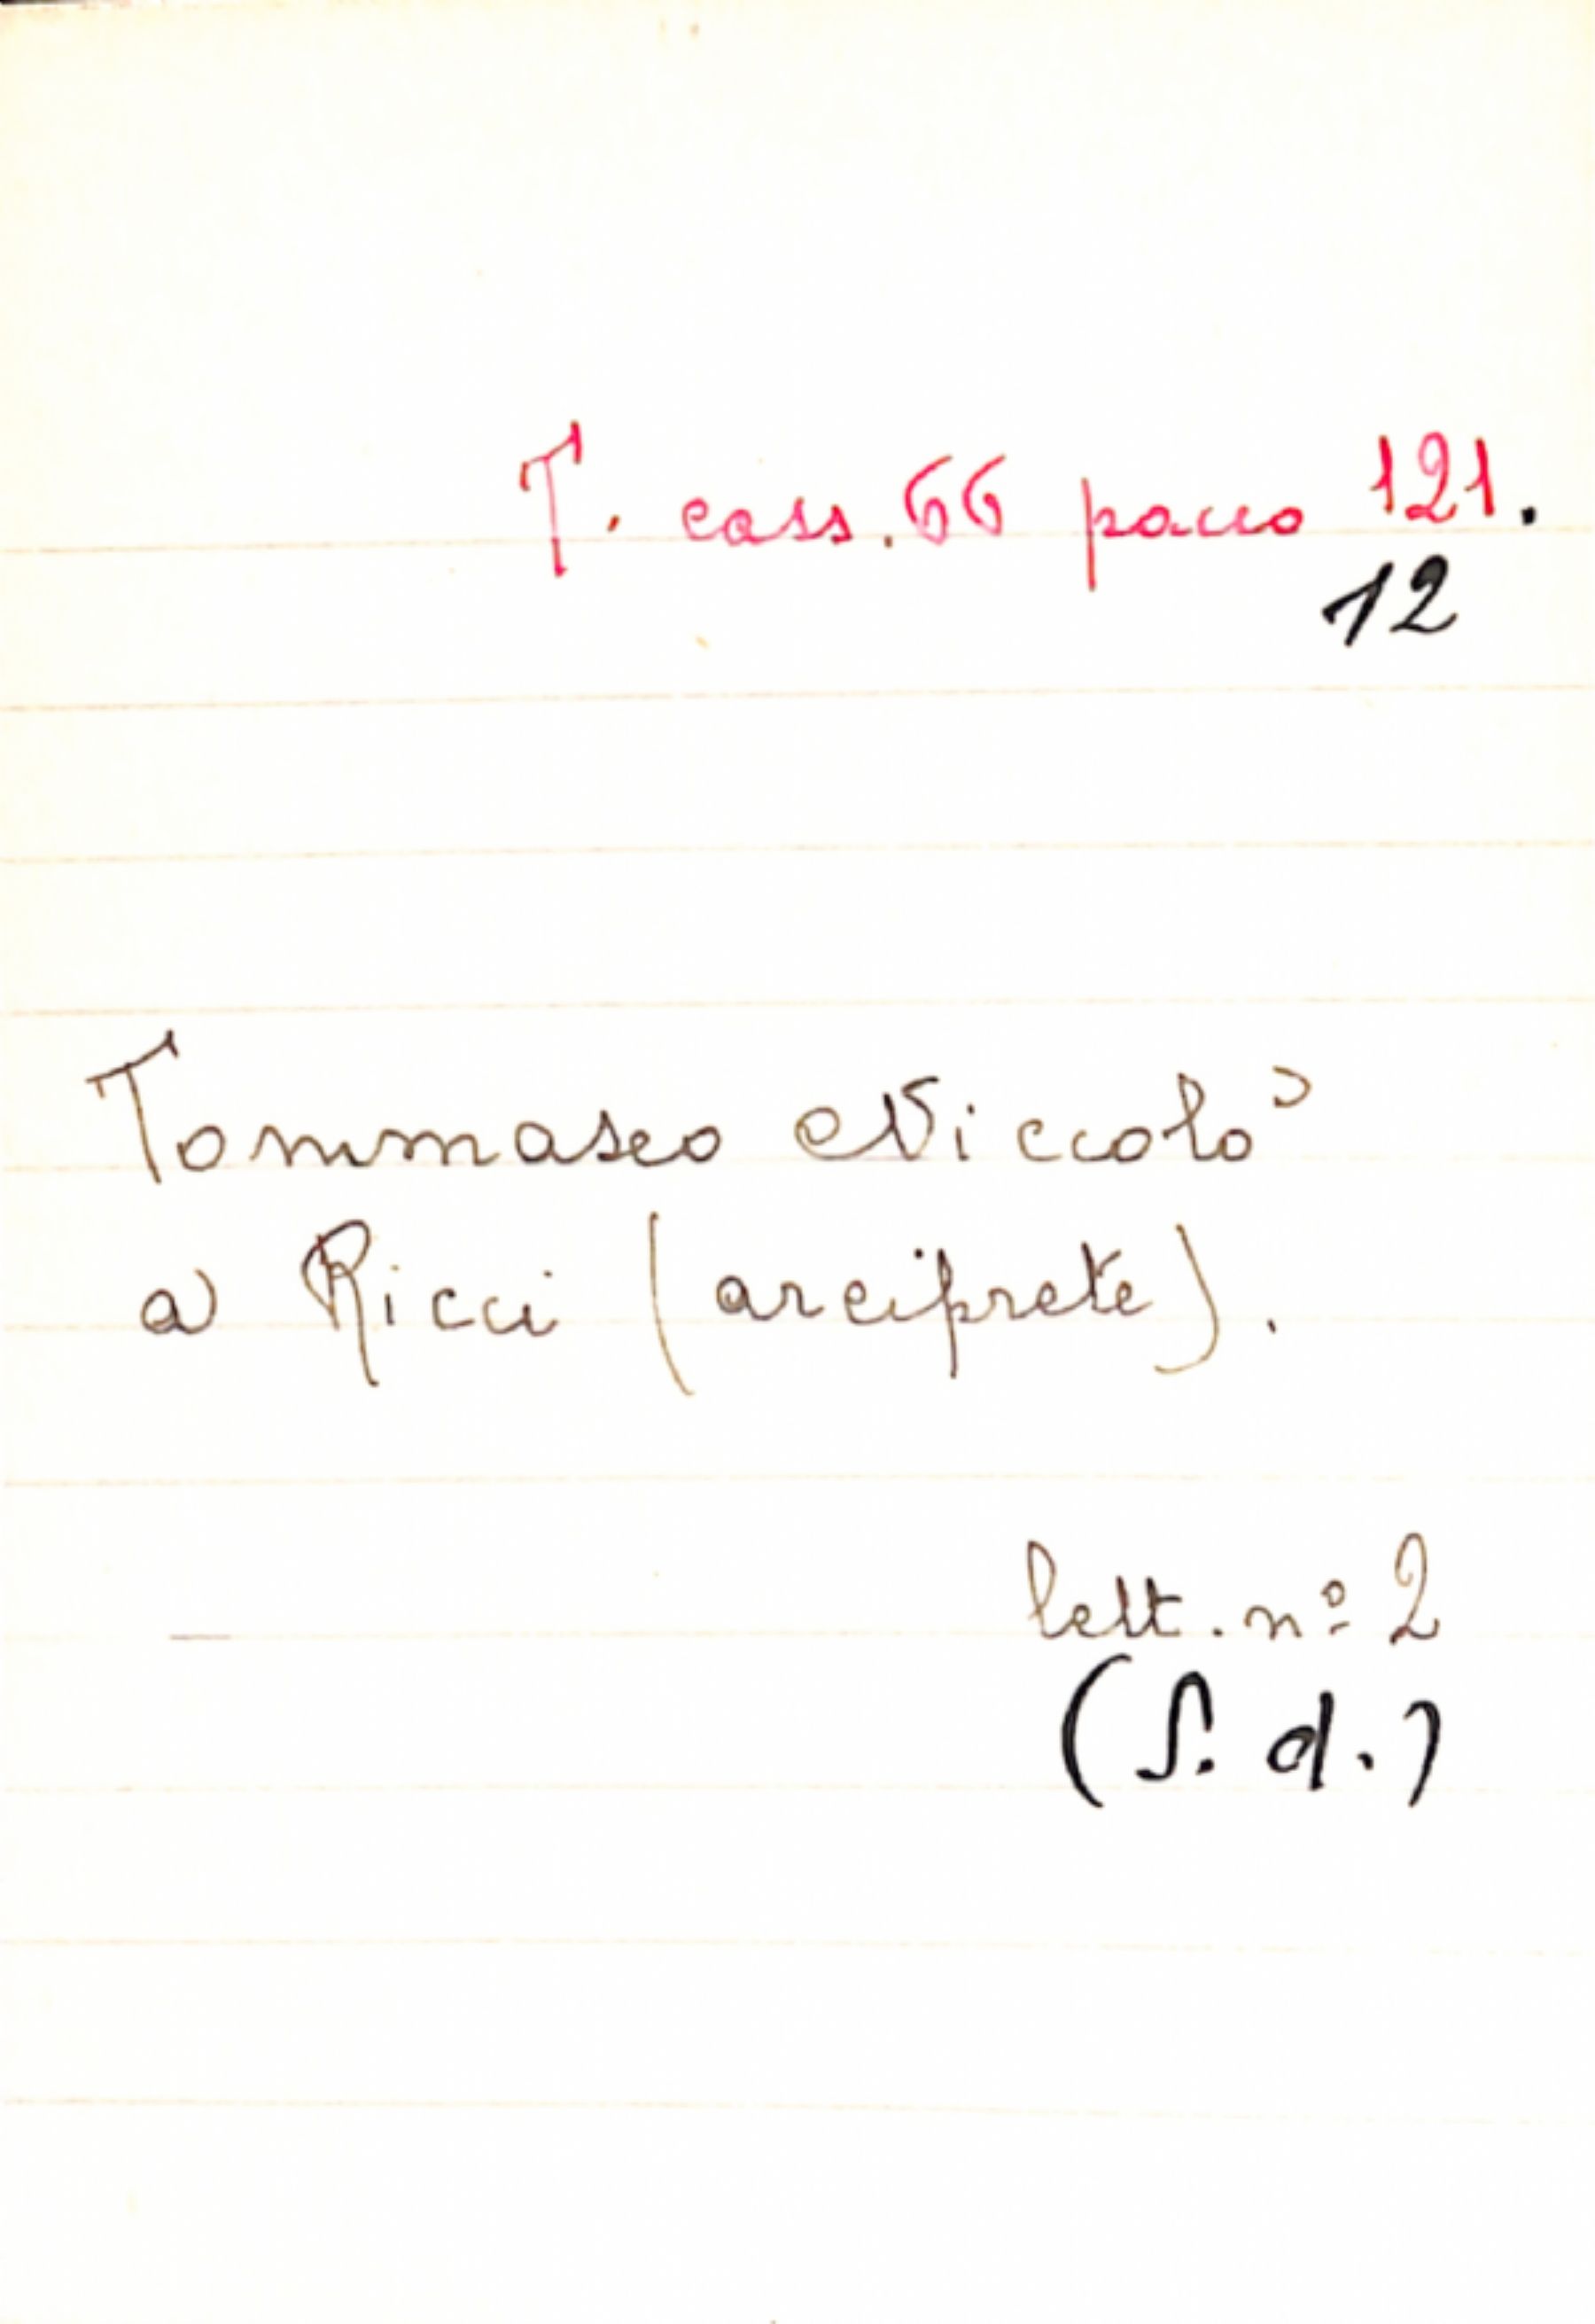 T. cass. 66 pacco 121.
12
Tommaseo Niccolò
a Ricci (arciprete).
lett. nº 2
(S. d.)